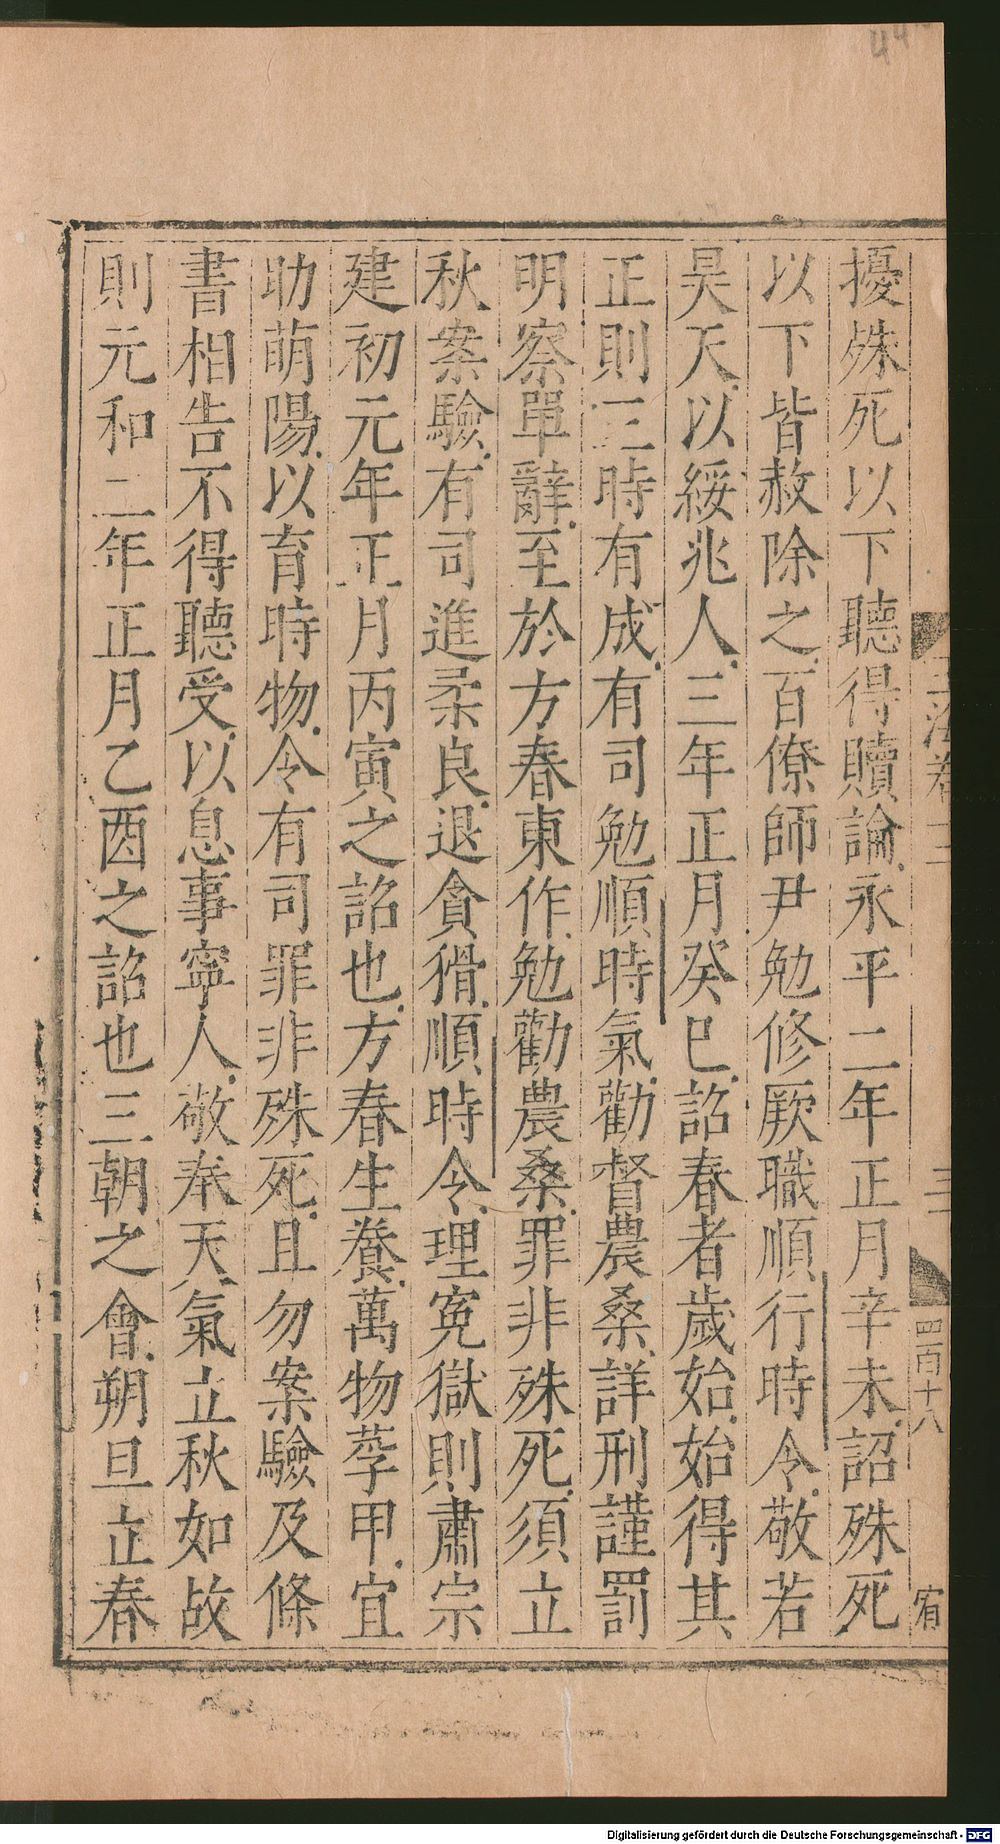 擾殊死以下聽得贖論永平二年正月辛未詔殊死
以下皆赦除之百僚師尹勉修厥職順行時令敬若
昊天以綏兆人三年正月癸巳詔春者歲始始得其
正則三時有成有司勉順時氣勸督農桑詳刑謹罰
明察單辭至於方春東作勉勸農桑罪非殊死須立
秋案驗有司進柔良退貪猾順時令理冤獄則肅宗
建初元年正月丙寅之詔也方春生養萬物莩甲宜
助萌陽以育時物令有司罪非殊死且勿案驗及條
書相告不得聽受以息事寧人敬奉天氣立秋如故
則元和二年正月乙酉之詔也三朝之會朔旦立春
卷二
三
四百十八
宥
44
Digitalisierung gefördert durch die Deutsche Forschungsgemeinschaft - DFG